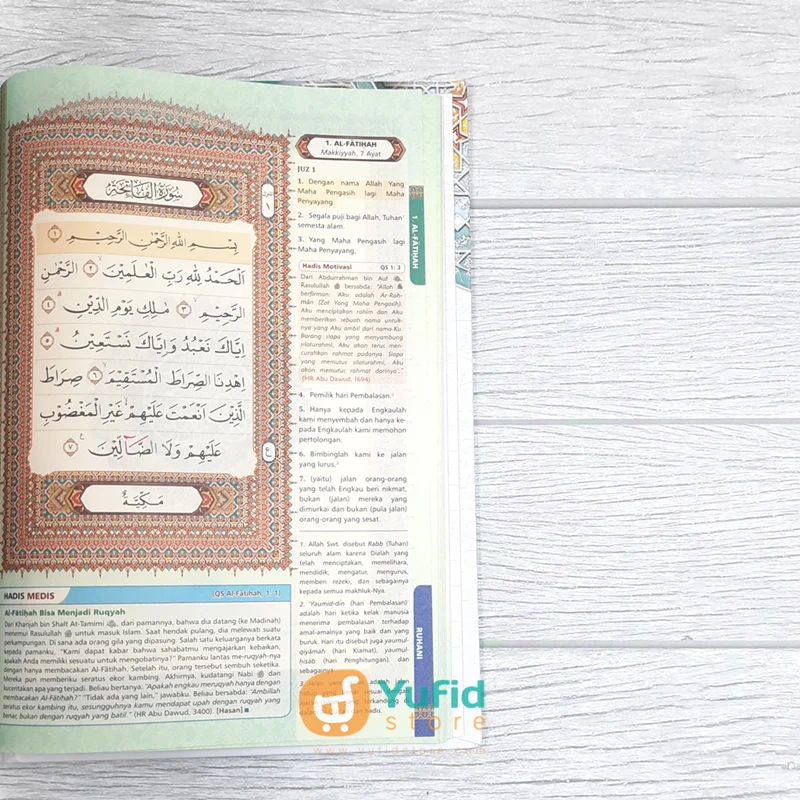 سُورَةُ الْفَاتِحَةِ
بِسْمِ اللهِ الرَّحْمٰنِ الرَّحِيْمِ ١
اَلْحَمْدُ لِلّٰهِ رَبِّ الْعٰلَمِيْنَ ٢ الرَّحْمٰنِ
الرَّحِيْمِ ٣ مٰلِكِ يَوْمِ الدِّيْنِ ٤
اِيَّاكَ نَعْبُدُ وَاِيَّاكَ نَسْتَعِيْنُ ٥
اِهْدِنَا الصِّرَاطَ الْمُسْتَقِيْمَ ٦ صِرَاطَ
الَّذِيْنَ اَنْعَمْتَ عَلَيْهِمْ غَيْرِ الْمَغْضُوْبِ
عَلَيْهِمْ وَلَا الضَّاۤلِّيْنَ ٧
مَكِّيَّةٌ
١
ع
1. AL-FĀTIḤAH
Makkiyyah, 7 Ayat
JUZ 1
1. Dengan nama Allah Yang
Maha Pengasih lagi Maha
Penyayang.
2. Segala puji bagi Allah, Tuhan¹
semesta alam.
3. Yang Maha Pengasih lagi
Maha Penyayang,
Hadis Motivasi QS 1: 3
Dari Abdurrahman bin Auf
Rasulullah ﷺ bersabda: "Allah
berfirman: Aku adalah Ar-Rah-
mān (Zat Yang Maha Pengasih).
Aku menciptakan rahim dan Aku
memberikan sebuah nama untuk-
nya yang Aku ambil dari nama-Ku.
Barang siapa yang menyambung
silaturahmi, Aku akan terus men-
curahkan rahmat padanya. Siapa
yang memutus silaturahmi, Aku
akan memutus rahmat darinya'."
(HR Abu Dawud, 1694)
4. Pemilik hari Pembalasan.²
5. Hanya kepada Engkaulah
kami menyembah dan hanya ke-
pada Engkaulah kami memohon
pertolongan.
6. Bimbinglah kami ke jalan
yang lurus,³
7. (yaitu) jalan orang-orang
yang telah Engkau beri nikmat,
bukan (jalan) mereka yang
dimurkai dan bukan (pula jalan)
orang-orang yang sesat.
1. Allah Swt. disebut Rabb (Tuhan)
seluruh alam karena Dialah yang
telah menciptakan, memelihara,
mendidik, mengatur, mengurus,
memberi rezeki, dan sebagainya
kepada semua makhluk-Nya.
2. 'Yaumid-dīn (hari Pembalasan)'
adalah hari ketika kelak manusia
menerima pembalasan terhadap
amal-amalnya yang baik dan yang
buruk. Hari itu disebut juga yaumul-
qiyāmah (hari Kiamat), yaumul
ḥisāb (hari Penghitungan), dan
sebagainya.
1. AL-FĀTIḤAH
RUHANI
HADIS MEDIS (QS Al-Fātiḥah, 1: 1)
Al-Fātiḥah Bisa Menjadi Ruqyah
Dari Kharijah bin Shalt At-Tamimi, dari pamannya, bahwa dia datang (ke Madinah)
menemui Rasulullah ﷺ untuk masuk Islam. Saat hendak pulang, dia melewati suatu
perkampungan. Di sana ada orang gila yang dipasung. Salah satu keluarganya berkata
kepada pamanku, "Kami dapat kabar bahwa sahabatmu mengajarkan kebaikan,
apakah Anda memiliki sesuatu untuk mengobatinya?" Pamanku lantas me-ruqyah-nya
dengan hanya membacakan Al-Fātiḥah. Setelah itu, orang tersebut sembuh seketika.
Mereka pun memberiku seratus ekor kambing. Akhirnya, kudatangi Nabi ﷺ dan
kuceritakan apa yang terjadi. Beliau bertanya: "Apakah engkau meruqyah hanya dengan
membacakan Al-Fātiḥah?" "Tidak ada yang lain," jawabku. Beliau bersabda: "Ambillah
seratus ekor kambing itu, sesungguhnya kamu mendapat upah dengan ruqyah yang
benar, bukan dengan ruqyah yang batil." (HR Abu Dawud, 3400). [Hasan] ■
Yufid
store
www.yufidstore.com